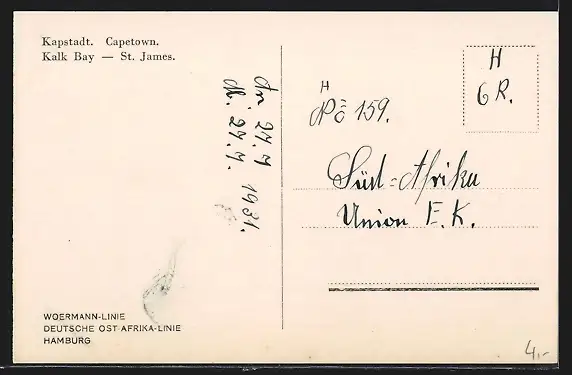 Kapstadt. Capetown.
Kalk Bay — St. James.
An 27.7
Ab. 27.7. 1931.
H
No 159.
H
6 R.
Süd-Afrika
Union E. K.
WOERMANN-LINIE
DEUTSCHE OST-AFRIKA-LINIE
HAMBURG
4,-